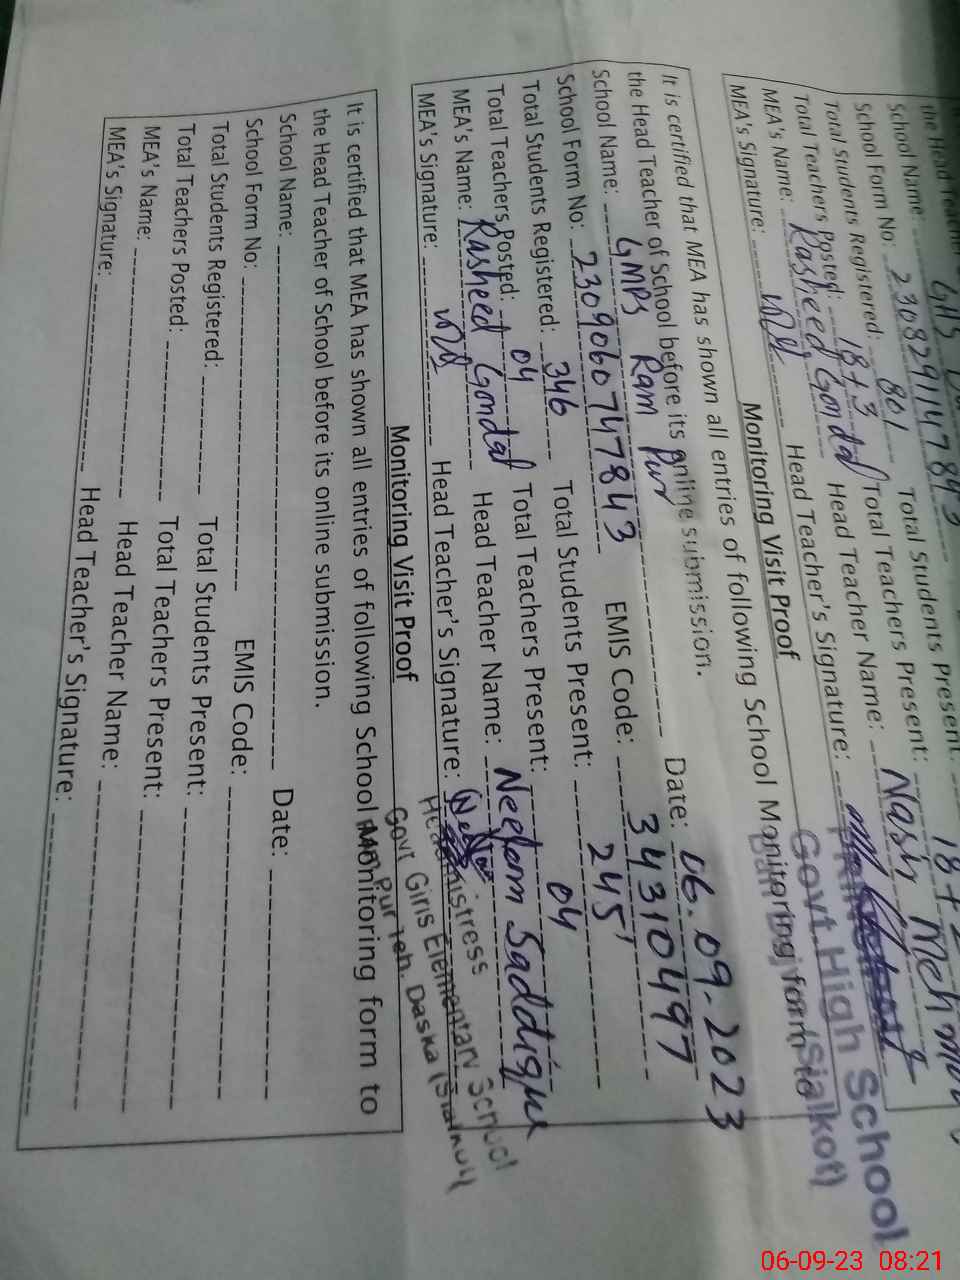 the Head Teacher
School Name: GHS
School Form No: 2308291147843
Total Students Registered: 801 Total Students Present:
Total Teachers Posted: 18+3 Total Teachers Present: 18+2
MEA's Name: Rasheed Gondal Head Teacher Name: Nasir Mehmood
MEA's Signature: Head Teacher's Signature:
Govt. High School
(Sialkot)
Monitoring Visit Proof
It is certified that MEA has shown all entries of following School Monitoring form to
the Head Teacher of School before its online submission.
School Name: GMPS Ram Pur Date: 06.09.2023
School Form No: 2309060747843 EMIS Code: 34310497
Total Students Registered: 346 Total Students Present: 245
Total Teachers Posted: 04 Total Teachers Present: 04
MEA's Name: Rasheed Gondal Head Teacher Name: Neelam Saddique
MEA's Signature: Head Teacher's Signature:
Headmistress
Govt Girls Elementary School
Ram Pur Teh. Daska (Sialkot)
Monitoring Visit Proof
It is certified that MEA has shown all entries of following School Monitoring form to
the Head Teacher of School before its online submission.
School Name: Date:
School Form No: EMIS Code:
Total Students Registered: Total Students Present:
Total Teachers Posted: Total Teachers Present:
MEA's Name: Head Teacher Name:
MEA's Signature: Head Teacher's Signature:
06-09-23 08:21